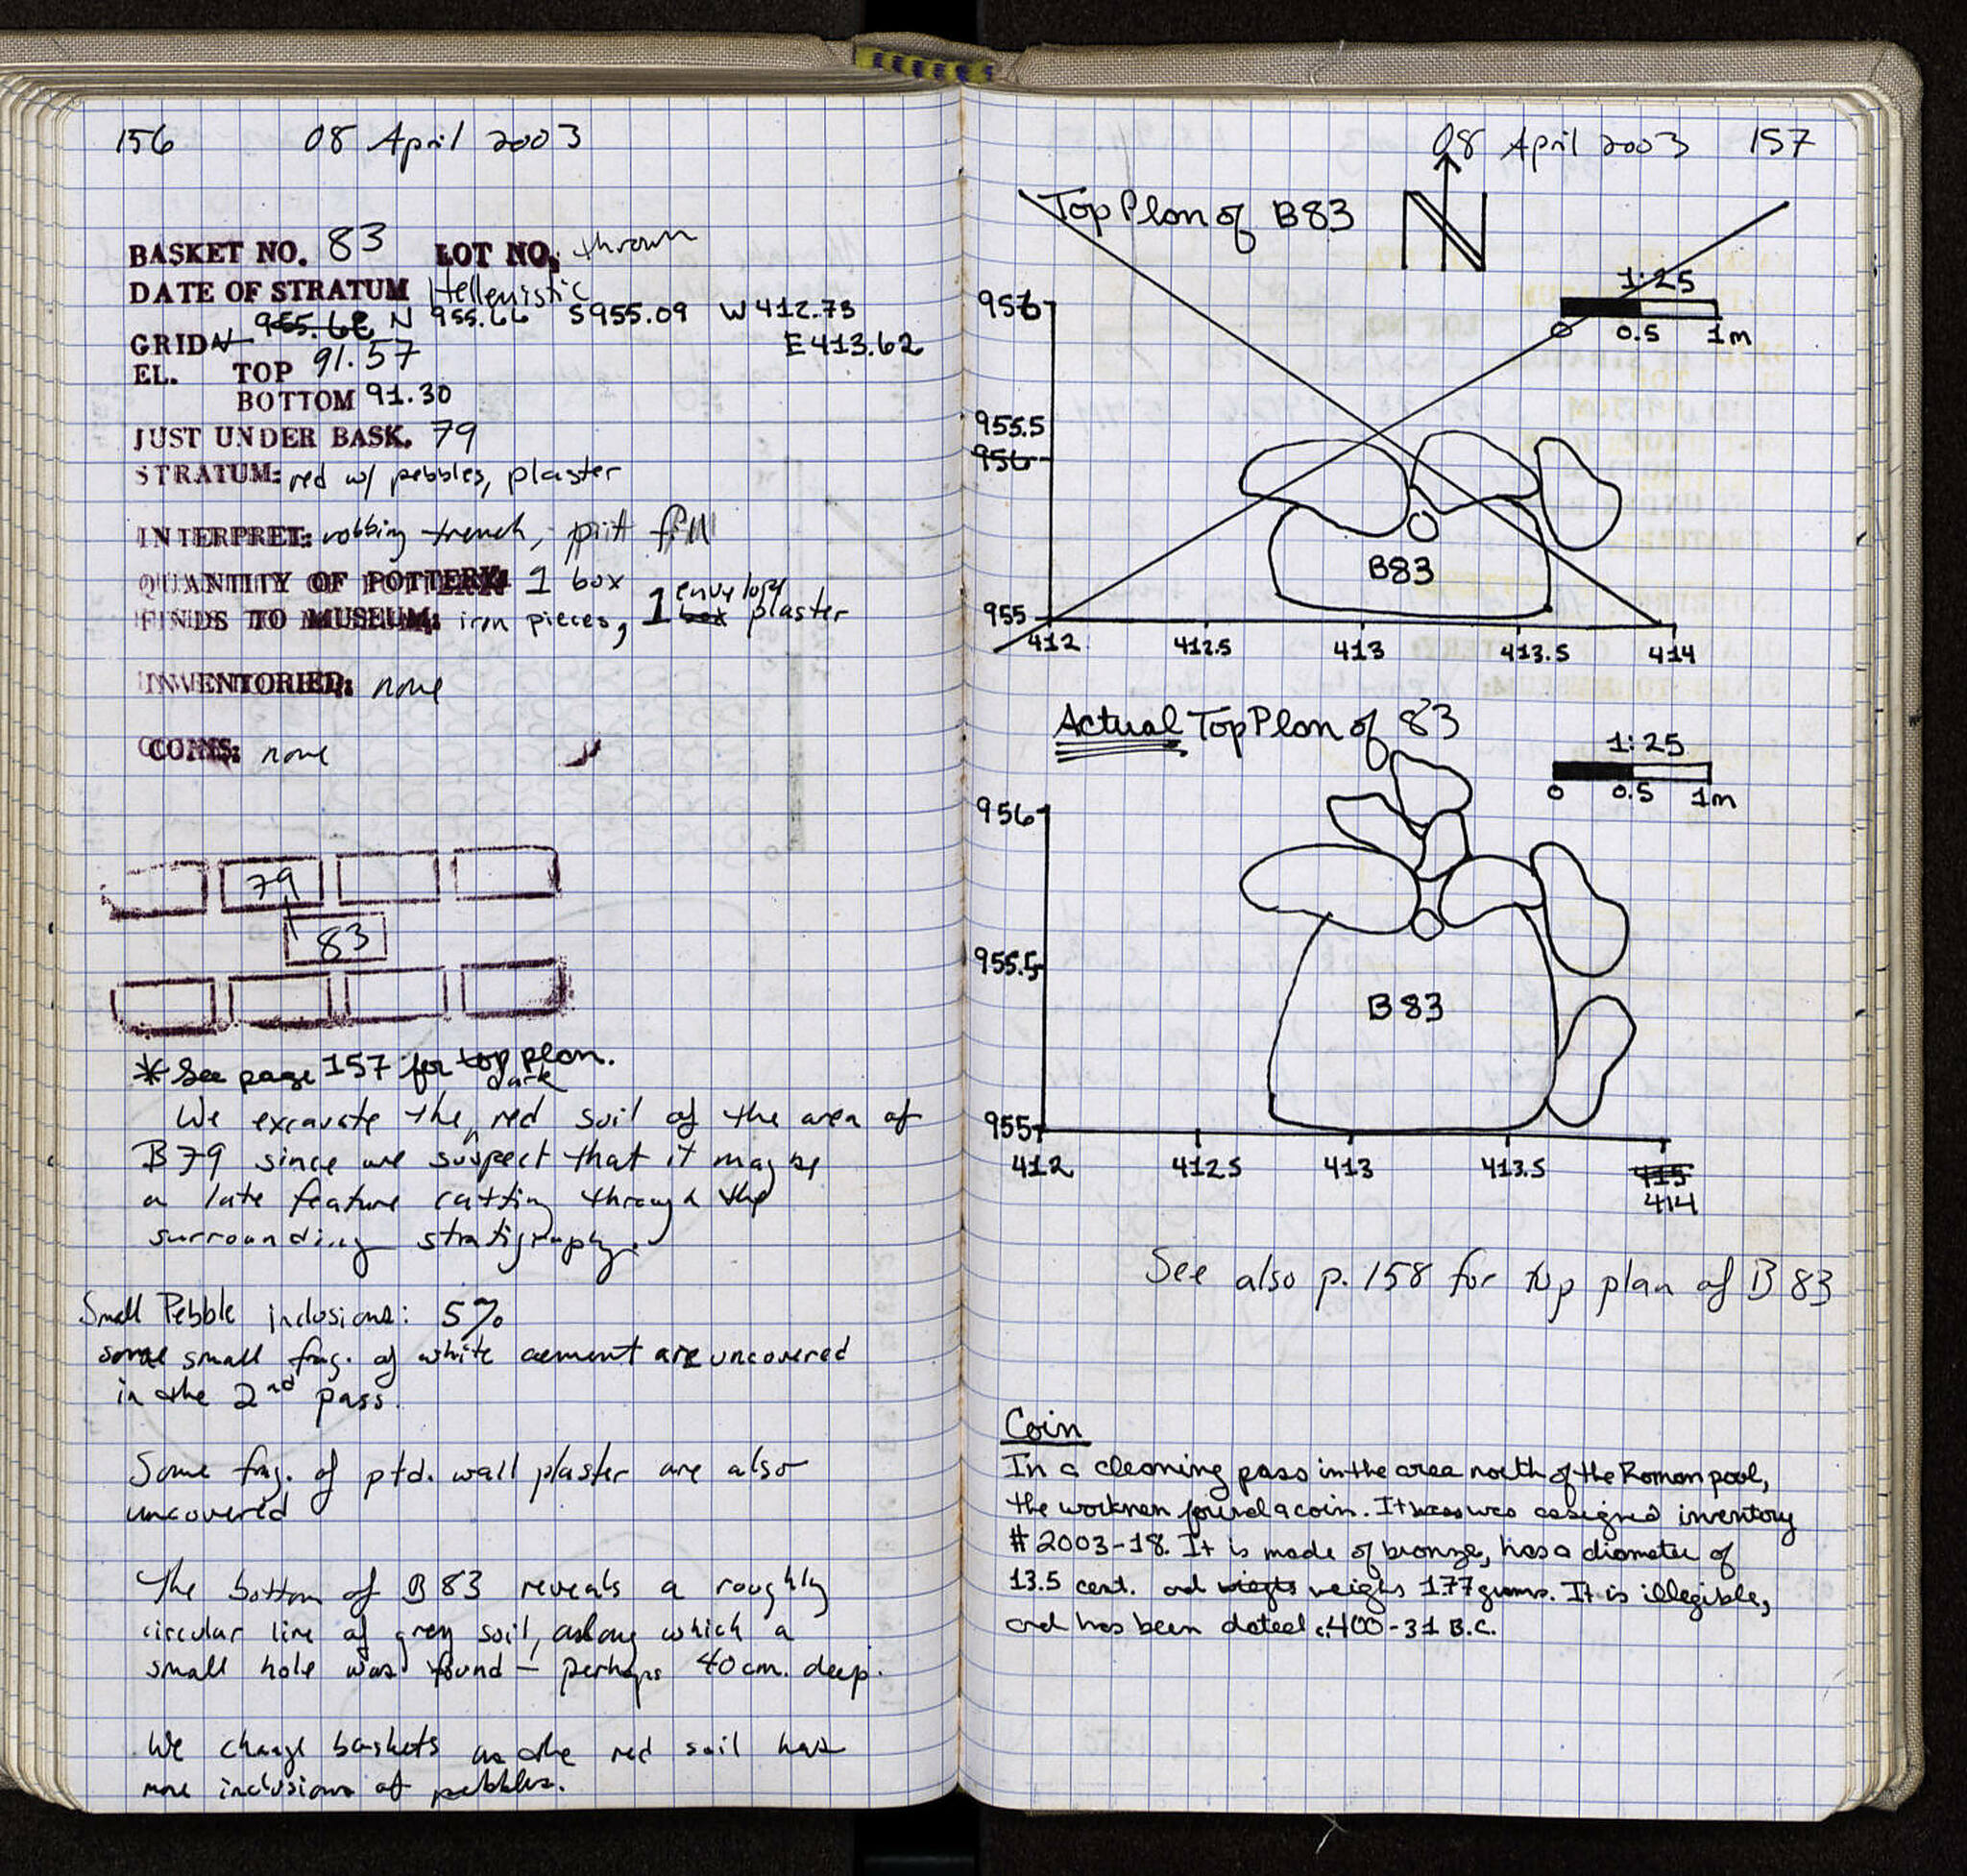 156 08 April 2003
BASKET NO. 83 LOT NO. thrown
DATE OF STRATUM Hellenistic
GRID N 955.66 N 955.66 S955.09 W412.73
E413.62
EL. TOP 91.57
BOTTOM 91.30
JUST UNDER BASK. 79
STRATUM: red w/ pebbles, plaster
INTERPRET: robbing trench, pit fill
QUANTITY OF POTTERY: 1 box
FINDS TO MUSEUM: iron pieces, 1 box envelope plaster
INVENTORIED: none
COINS: none
79
83
* See page 157 for top plan.
We excavate the dark red soil of the area of
B79 since we suspect that it may be
a late feature cutting through the
surrounding stratigraphy.
Small Pebble inclusions: 5%
some small frag. of white cement are uncovered
in the 2nd pass.
Some frag. of ptd. wall plaster are also
uncovered
The bottom of B83 reveals a roughly
circular line of grey soil, along which a
small hole was found – perhaps 40cm. deep.
We change baskets as the red soil has
more inclusions of pebbles.
08 April 2003 157
Top Plan of B83
N
1:25
0 0.5 1m
956
955.5
956
B83
955
412 412.5 413 413.5 414
Actual Top Plan of 83
1:25
0 0.5 1m
956
955.5
B83
955
412 412.5 413 413.5 415
414
See also p. 158 for top plan of B83
Coin
In a cleaning pass in the area north of the Roman pool,
the workmen found a coin. It was assigned inventory
# 2003-18. It is made of bronze, has a diameter of
13.5 cent. and weighs 1.77 grams. It is illegible,
and has been dated c.400-31 B.C.